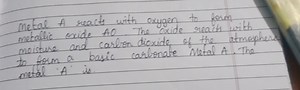 Metal A reacts with oxygen to form
metallic oxide AO. The oxide reacts with
moisture and carbon dioxide of the atmosphere
to form a basic carbonate Metal A. The
metal 'A' is